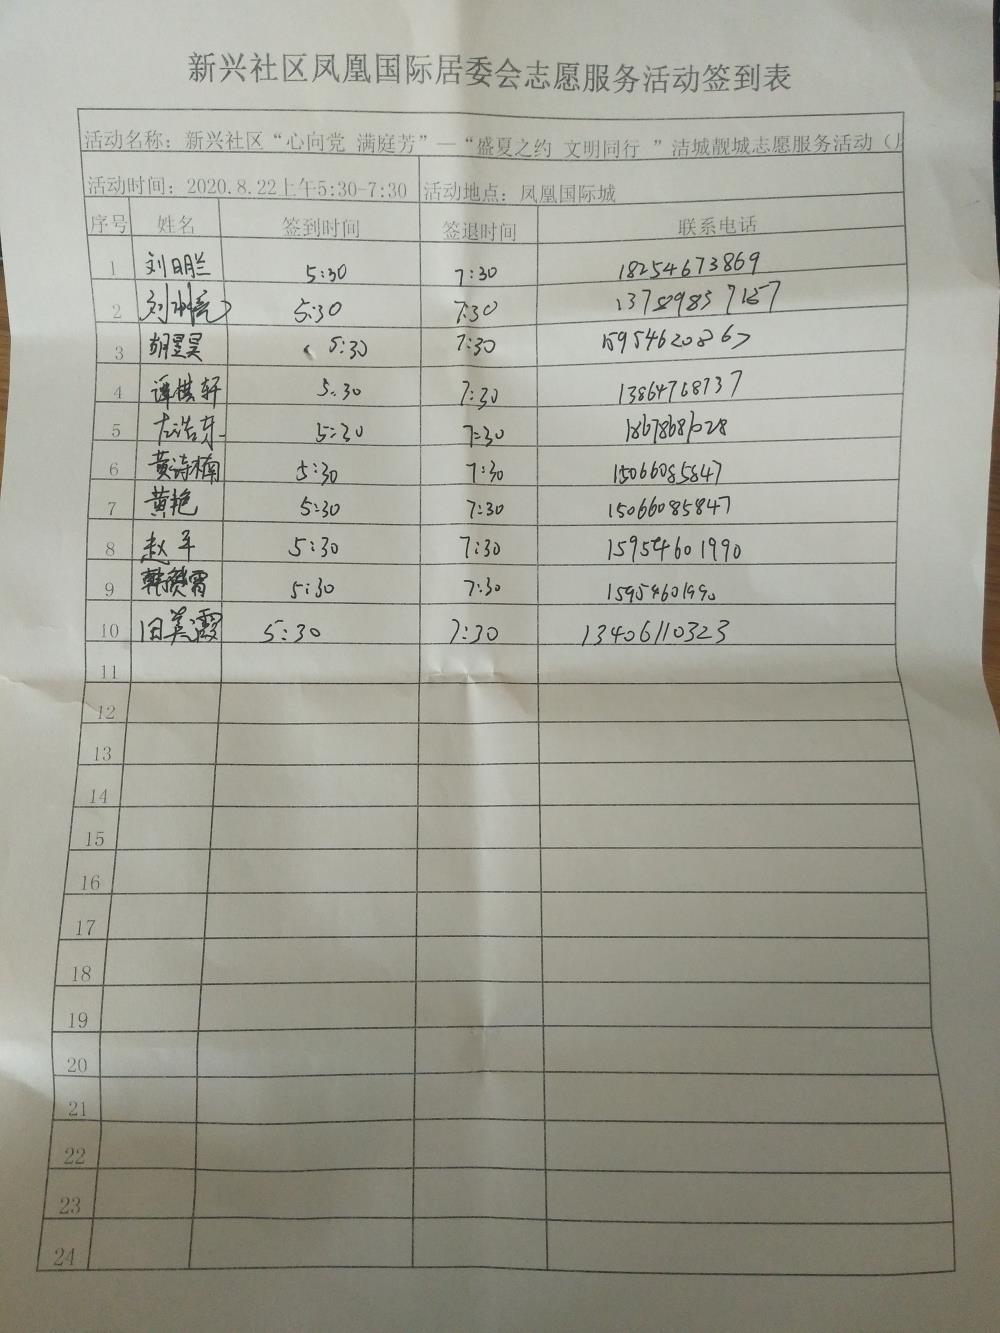 新兴社区凤凰国际居委会志愿服务活动签到表
活动名称：新兴社区“心向党 满庭芳”—“盛夏之约 文明同行 ”洁城靓城志愿服务活动（
活动时间：2020.8.22上午5:30-7:30 活动地点：凤凰国际城
序号 姓名 签到时间 签退时间 联系电话
1 刘明兰 5:30 7:30 18254673869
2 刘 5:30 7:30 13789857157
3 胡昱昊 5:30 7:30 15954620867
4 谭棋轩 5:30 7:30 13864768737
5 左浩东 5:30 7:30
6 黄诗楠 5:30 7:30 15066085847
7 黄艳 5:30 7:30 15066085847
8 赵平 5:30 7:30 15954601990
9 韩赟霄 5:30 7:30 15954601990
10 田英霞 5:30 7:30 13406110323
11
12
13
14
15
16
17
18
19
20
21
22
23
24